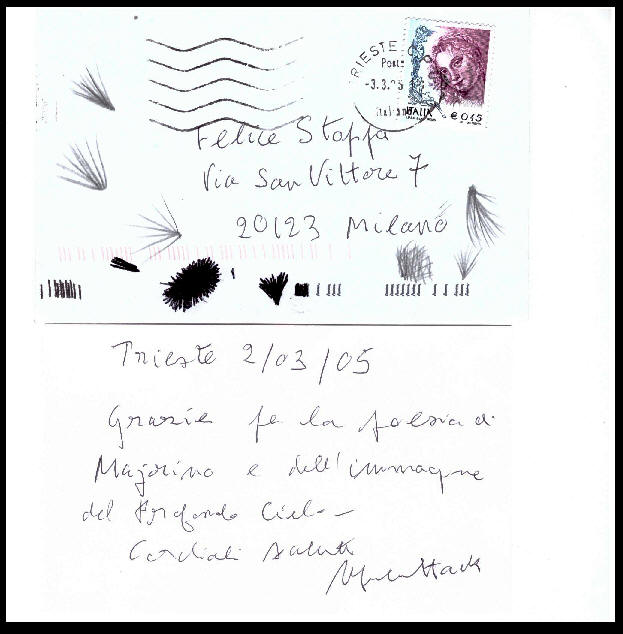 TRIESTE
Poste
-3.3.05
Italiane
ITALIA
€ 0,15
Felice Stappa
Via San Vittore 7
20123 Milano
Trieste 2/03/05
Grazie per la poesia di
Majorino e dell'immagine
del Profondo Cielo
Cordiali saluti